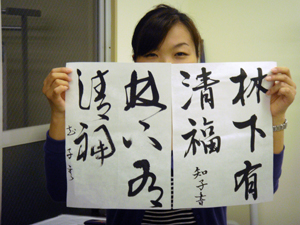 林下有
清福
知子書
林下有
清福
知子書